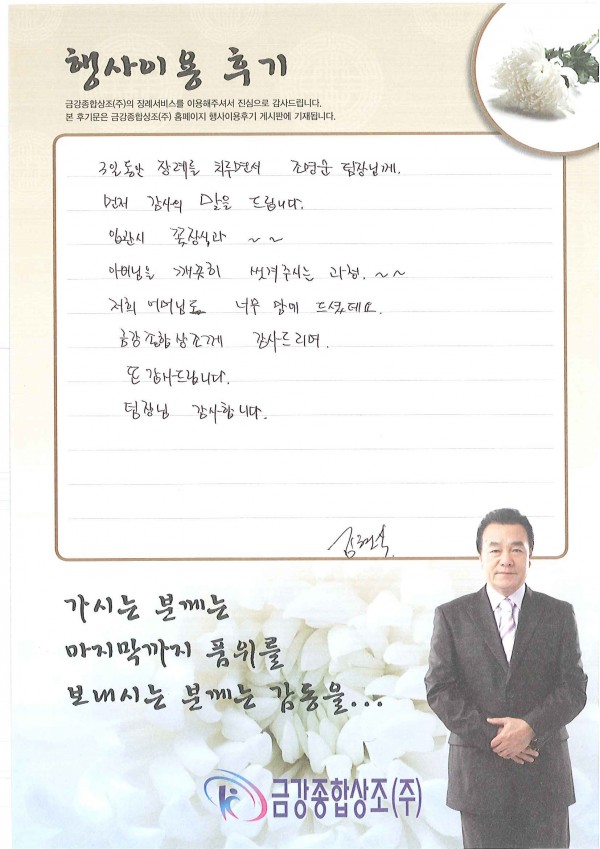 행사이용 후기
금강종합상조(주)의 장례서비스를 이용해주셔서 진심으로 감사드립니다.
본 후기문은 금강종합상조(주) 홈페이지 행사이용후기 게시판에 기재됩니다.
3일동안 장례를 치루면서 조영운 팀장님께.
먼저 감사의 말을 드립니다.
입관시 꽃장식과 ~ ~
아버님을 깨끗히 씻겨주시는 과정. ~ ~
저희 어머님도 너무 맘에 드셨데요.
금강종합상조께 감사드리며.
또 감사드립니다.
팀장님 감사합니다.
가시는 분께는
마지막까지 품위를
보내시는 분께는 감동을...
금강종합상조(주)